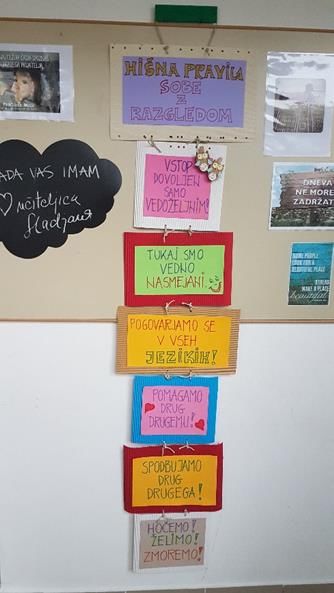 HIŠNA PRAVILA
SOBE
Z
RAZGLEDOM
VSTOP
DOVOLJEN
SAMO
VEDOŽELJNIM!
TUKAJ SMO
VEDNO
NASMEJANI.
POGOVARJAMO SE
V VSEH
JEZIKIH!
POMAGAMO
DRUG
DRUGEMU!
SPODBUJAMO
DRUG
DRUGEGA!
HOČEMO!
ŽELIMO!
ZMOREMO!
RADA VAS IMAM
učiteljica
DNEVA
NE MORE
ZADRŽAT
SOME PEOPLE
LOOK FOR A
BEAUTIFUL PLACE
OTHERS
MAKE A PLACE
beautiful